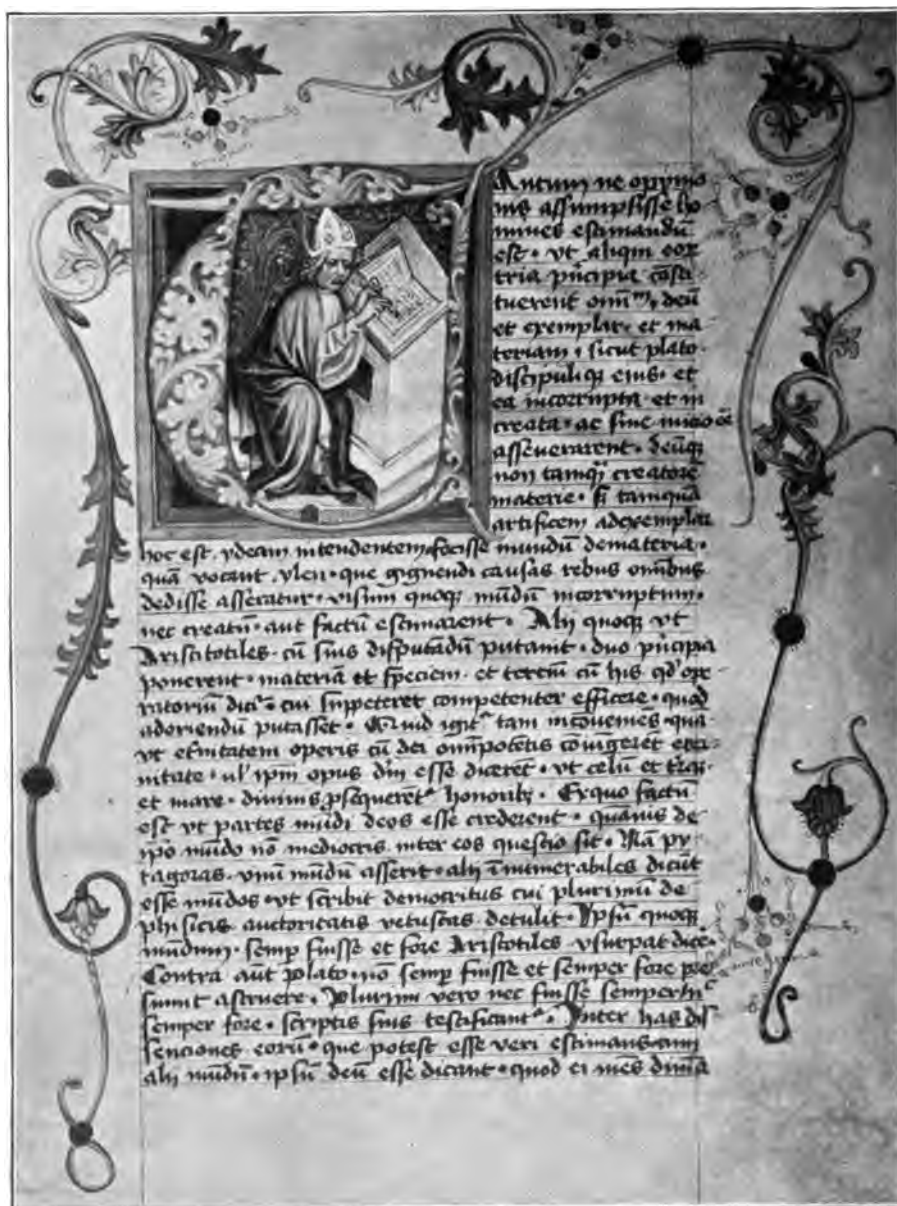 Antum ne opynio
nis assumpsisse ho
mines estimandū
est · vt aliqui eorꝫ
tria pͥncipia costi
tuerent omīm · deū
et exemplar · et ma
teriam · sicut plato ·
discipuliqꝫ eius · et
ea incorrupta et in
creata · ac sine inicio eē
asseuerarent · deūqꝫ
non tamqͣ creatorē
materie · sꝫ tamquā
artificem ad exemplar
hoc est · ydeam intendentem fecisse mundū de materia ·
quā vocant · ylen · que gignendi causas rebus omībus
dedisse asseratur · visum quoqꝫ mūdū incorruptum ·
nec creatū · aut factū estimarent · Alij quoqꝫ vt
Aristotiles · cū suis disputādū putauit · duo pͥncipia
ponerent · materiā et speciem · et terciū cū his qd' ope
ratoriū dicͬ · cui suppeteret competenter efficere · quod
adoriendū putasset · Quid igitͬ tam incōueniēs · quā
vt etnitatem operis cū dei omīpotētis cōiūgerēt eter
nitate · ul' ipm̄ opus dm̄ esse dicerēt · vt celū et trāꝫ
et mare · diuinis ꝓsequerētͬ honoribꝫ · Ex quo factū
est vt partes mūdi deos esse crederent · quāuis de
ipo mūdo nō mediocris inter eos questio sit · Nā py
tagoras · vnū mūdū asserit · alij īnumerabiles dicūt
esse mūdos · vt scribit democritus cui plurimū de
phisicis auctoritatis vetustas detulit · Ipsūm quoqꝫ
mūdum · semꝑ fuisse et fore Aristotiles vsurpat dicē ·
Contra aut plato nō semꝑ fuisse et semper fore pre
sumit astruere · Plurimi vero nec fuisse semper nͨ
semper fore · scriptis suis testificantͬ · Inter has dis
senciones eorū · que potest esse veri estimans cum
alij mūdū · ipsū deū esse dicant · quod ei mēs diuīa